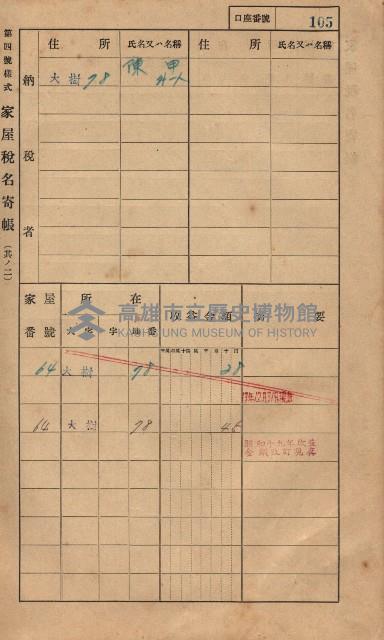 口座番號 105
第四號樣式 家屋稅名寄帳 (其ノ二)
納稅者
住所 氏名又ハ名稱 住所 氏名又ハ名稱
大樹 78 陳甲
外一人
家屋番號 所在 賃貸金額 摘要
大字 字 地番
64 大樹 78 28
64 大樹 78 45
昭和十九年改訂
高雄市立歷史博物館
KAOHSIUNG MUSEUM OF HISTORY